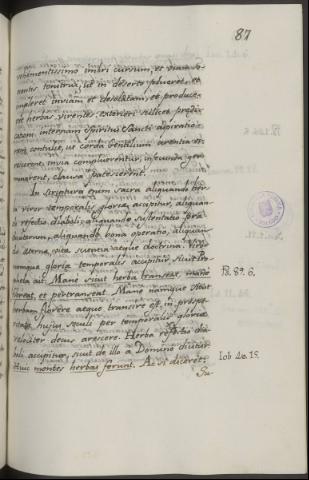 87
vehementissimo imbri cursum, et viam so-
nantis tonitrui, ut in deserto plueret, et
impleret inviam et desolatam, et produce-
ret herbas virentes. exteriori scilicet prædi-
cationi, internam Spiritus Sancti aspiratio-
nem contulit, ut corda Gentilium arentia vi-
rescerent, invia
infecunda ger-
minarent, clausa patescerent.
In Scriptura enim sacra aliquando
viror temporalis gloriæ accipitur, aliquan-
do refectio diaboli, aliquando sustentatio præ-
dicatorum, aliquando bona operatio, aliquan-
do æterna vitæ scientia atque doctrina. Viror
namque gloriæ temporalis accipitur, sicut Pro-
pheta ait. Mane sicut herba transeat, mane
floreat, et pertranseat. Mane namque sicut
herbam florere atque transire est, in prospe-
ritate hujus sæculi per temporalis gloriæ
velociter decus arescere. Herba refectio dia-
boli accipitur, sicut de illo a Domino dicitur.
Huic montes herbas ferunt. Ac si diceret:
Su-
Ps. 89. 6.
Iob. 40. 15.